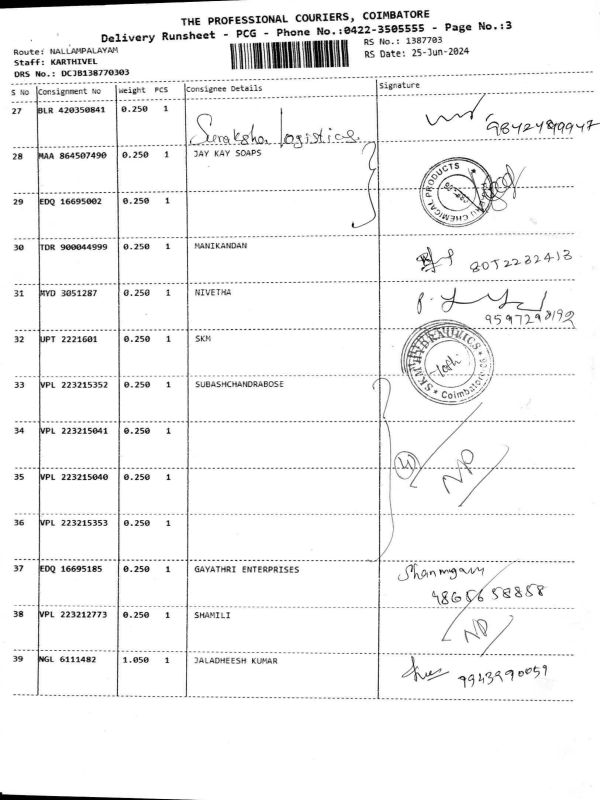 THE PROFESSIONAL COURIERS, COIMBATORE
Delivery Runsheet - PCG - Phone No.:0422-3505555 - Page No.:3
Route: NALLAMPALAYAM
RS No.: 1387703
Staff: KARTHIVEL
RS Date: 25-Jun-2024
DRS No.: DCJB138770303
S No Consignment No Weight PCS Consignee Details Signature
27 BLR 420350841 0.250 1 Suraksha Logistics
28 MAA 864507490 0.250 1 JAY KAY SOAPS
CHEMICAL PRODUCTS
29 EDQ 16695002 0.250 1
30 TDR 900044999 0.250 1 MANIKANDAN
31 MYD 3051287 0.250 1 NIVETHA
9597298192
32 UPT 2221601 0.250 1 SKM
Coimbatore
33 VPL 223215352 0.250 1 SUBASHCHANDRABOSE
34 VPL 223215041 0.250 1
4
ND
35 VPL 223215040 0.250 1
36 VPL 223215353 0.250 1
37 EDQ 16695185 0.250 1 GAYATHRI ENTERPRISES
38 VPL 223212773 0.250 1 SHAMILI
ND
39 NGL 6111482 1.050 1 JALADHEESH KUMAR
9943990059